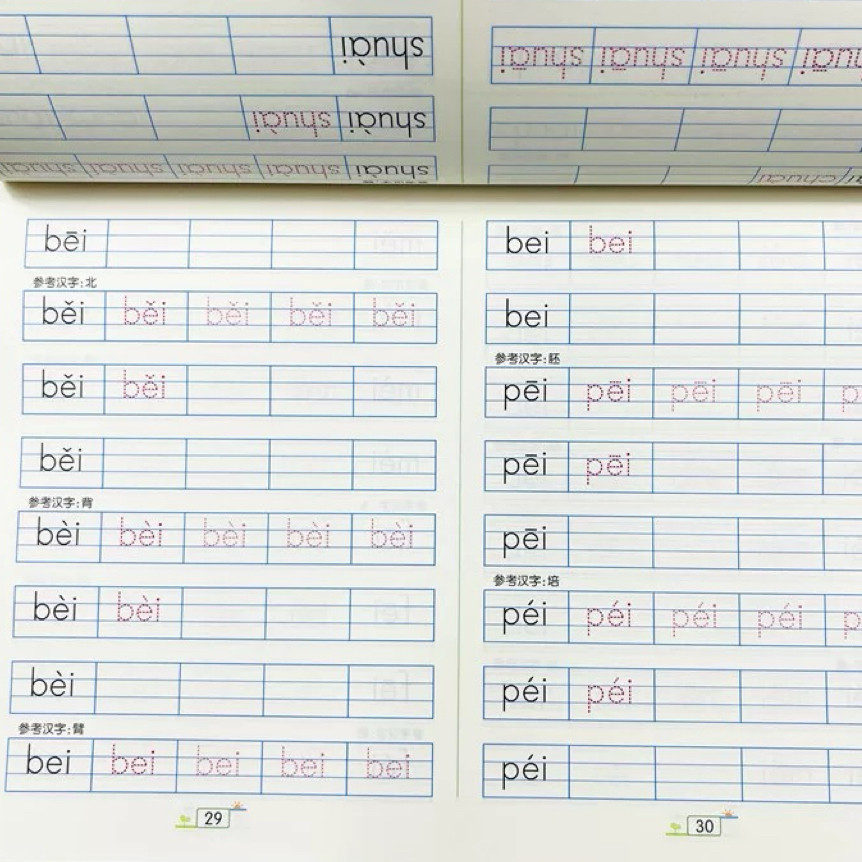 shuài
shuài shuài
shuài shuài shuài shuài shuài
shuāi shuāi shuāi
bēi
参考汉字:北
běi běi běi běi běi
běi běi
běi
参考汉字:背
bèi bèi bèi bèi bèi
bèi bèi
bèi
参考汉字:臂
bei bei bei bei bei
29
bei bei
bei
参考汉字:胚
pēi pēi pēi pēi p
pēi pēi
pēi
参考汉字:培
péi péi péi péi p
péi péi
péi
30